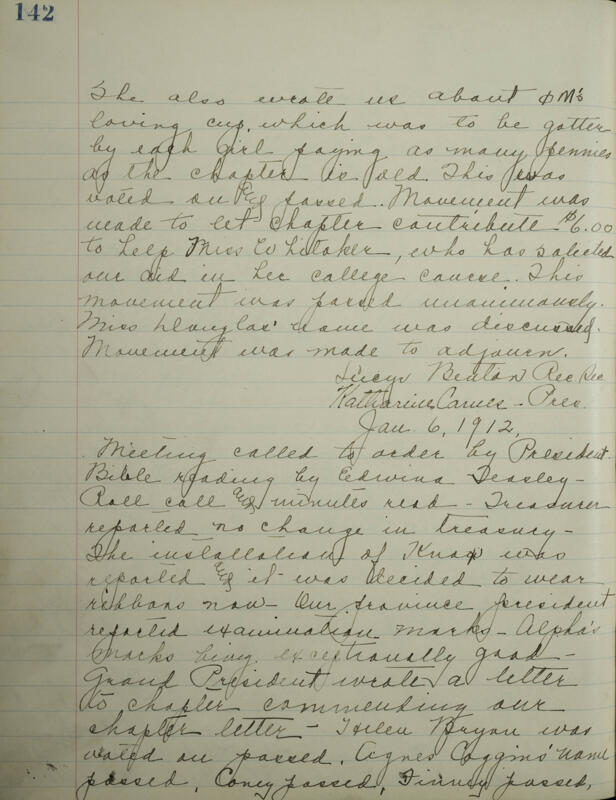 142
She also wrote us about ΦM's
loving cup, which was to be gotten
by each girl paying as many pennies
as the chapter is old. This was
voted on and passed. Movement was
made to let chapter contribute $6.00
to help Miss Whitaker, who has solicited
our aid in her college course. This
movement was passed unanimously.
Miss Douglas' name was discussed.
Movement was made to adjourn.
Lucye Benton Rec Sec
Katharine Carnes - Pres.
Jan. 6, 1912.
Meeting called to order by President.
Bible reading by Edwina Teasley -
Roll call and minutes read - Treasurer
reported no change in treasury -
The installation of Knox was
reported and it was decided to wear
ribbons now - Our province president
reported examination marks - Alpha's
marks being exceptionally good -
Grand President wrote a letter
to chapter commending our
chapter letter - Helen Bryan was
voted on passed. Agnes Coggins' name
passed, Coney passed, Finney passed,